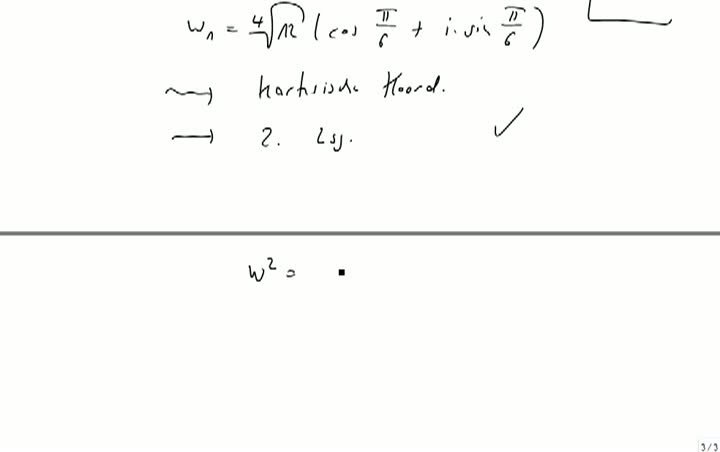 w₁ = ∜12 (cos π/6 + i·sin π/6)
⇝ kartesische Koord.
→ 2. Lsg. ✓
w² =
3/3